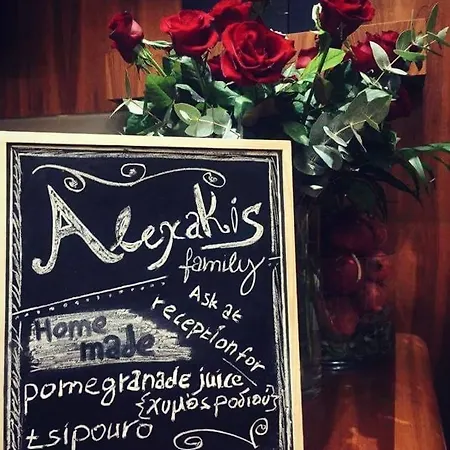 Alexakis
family
Ask at
reception for
Home
made
pomegranade juice
{χυμός ροδιού}
tsipouro